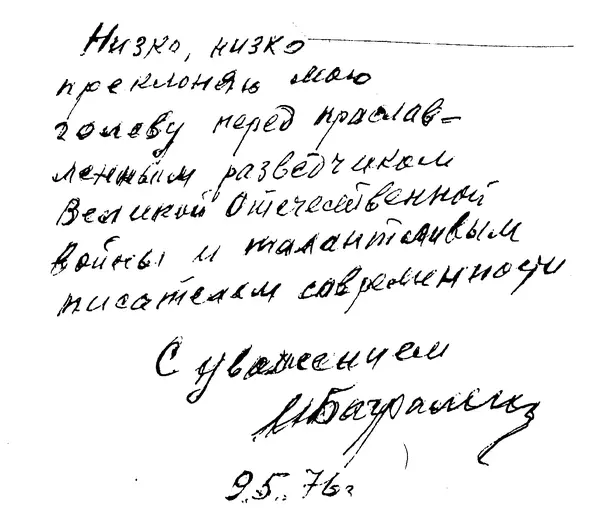 Низко, низко
преклоняю мою
голову перед прослав-
ленным разведчиком
Великой Отечественной
войны и талантливым
писателем современности
С уважением
И Баграмян
9.5.76г